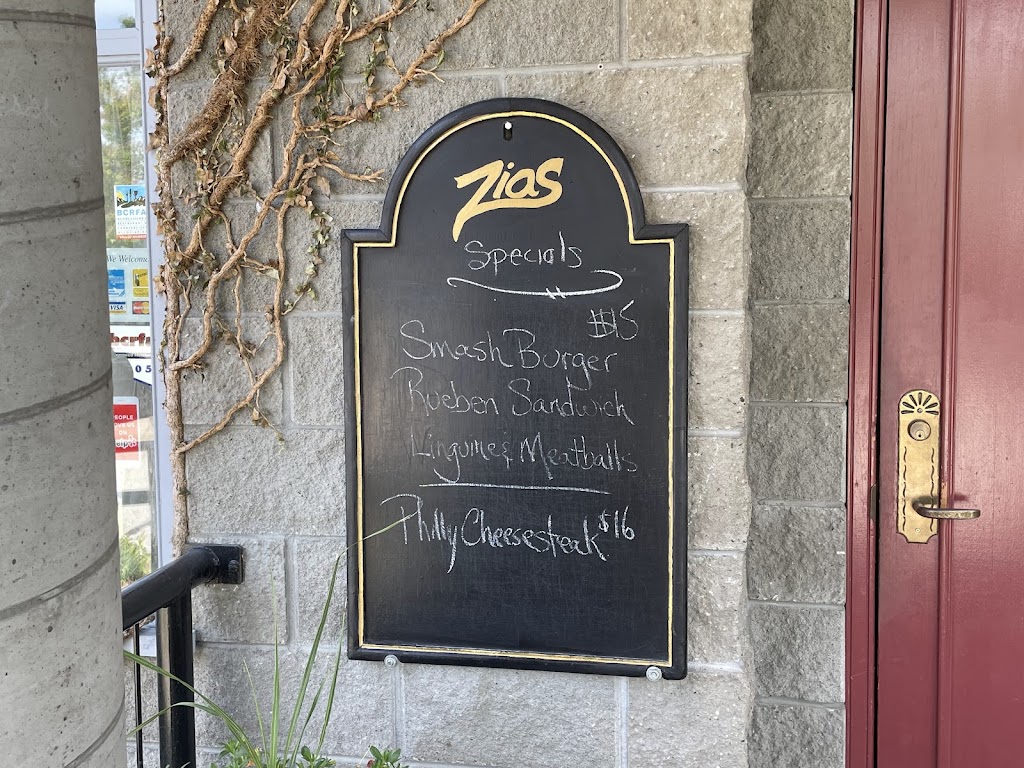 Zias
Specials
$15
Smash Burger
Rueben Sandwich
Linguine & Meatballs
Philly Cheesesteak $16
BCRFA
We Welcome
VISA
05
PEOPLE
ON